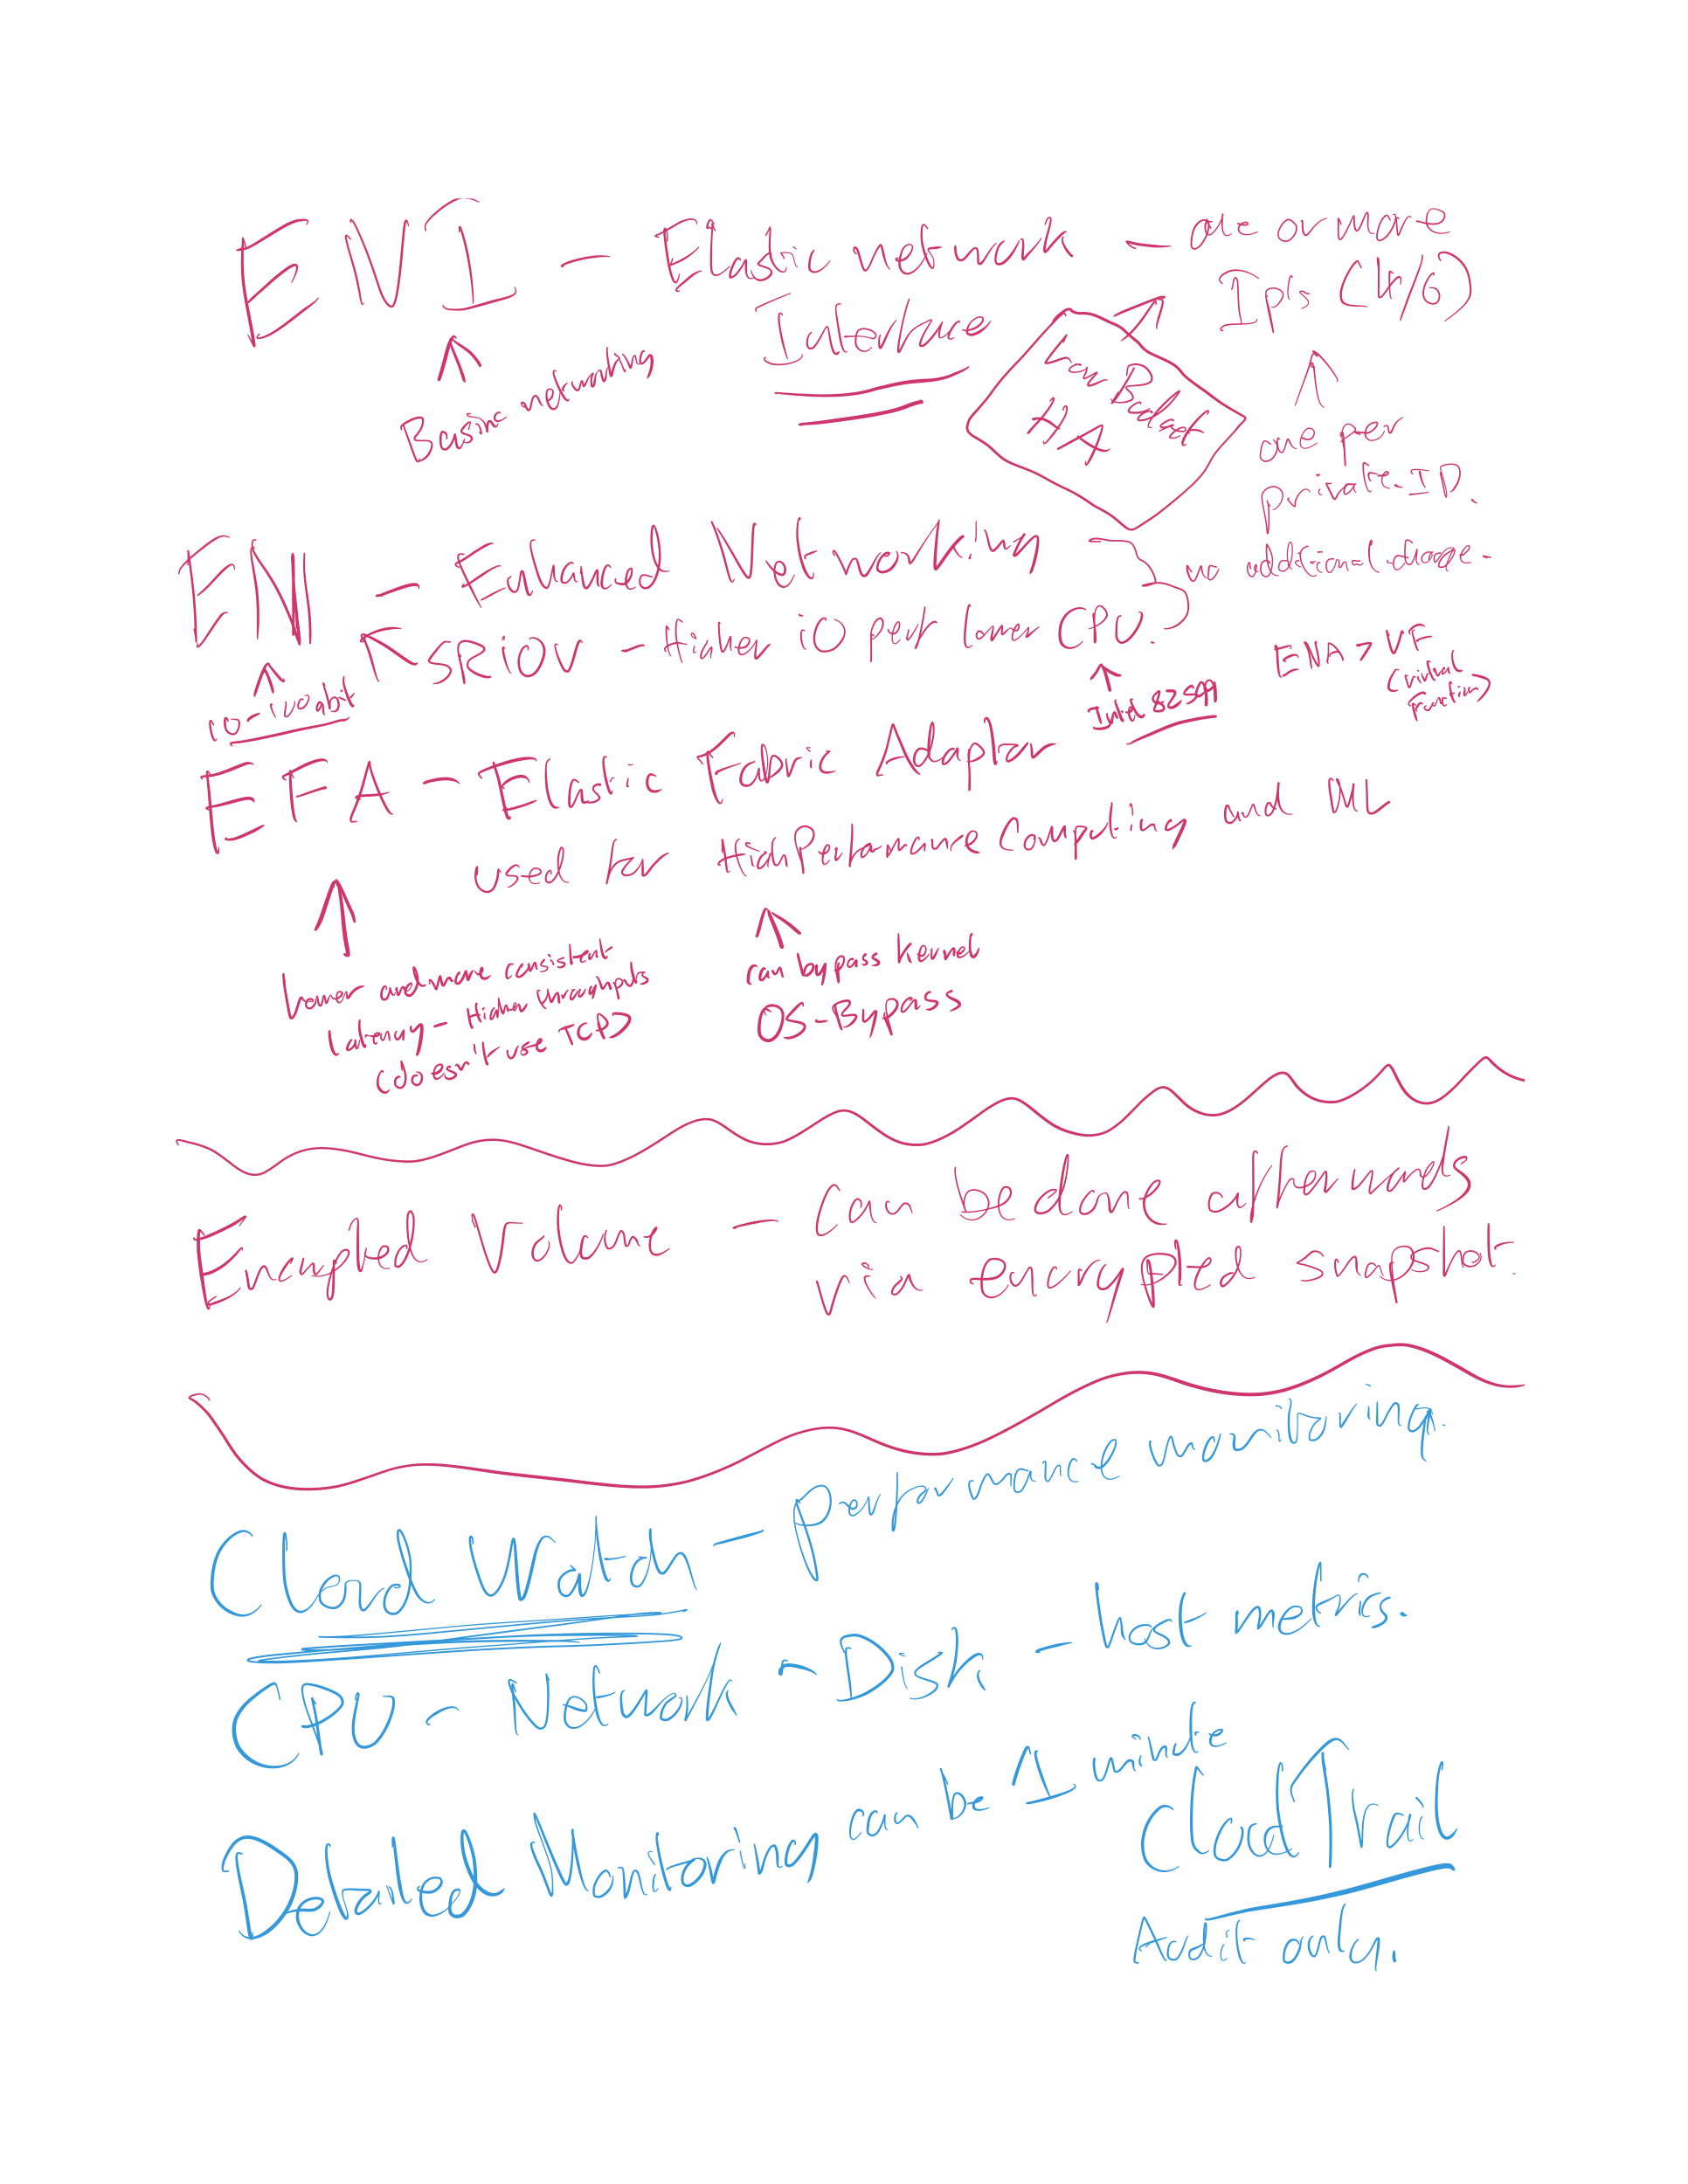 ENI – Elastic network – one or more
Interface
Ip's (4/6)
Basic networking
Low Budget
HA
one per
private IP.
EN – Enhanced Networking
no additional charge.
SRIOV – Higher iO perf lower CPU.
10-100gbit
Intel 82599
ENA > VF
(virtual
function)
EFA – Elastic Fabric Adaptor
used for High Performance Computing and ML
Lower and more consistent
latency – Higher throughputs
(doesn't use TCP)
can bypass kernel
OS-Bypass
Encrypted Volume – Can be done afterwards
via encrypted snapshot.
Cloud Watch – performance monitoring.
CPU – Network – Disk – host metrics.
Detailed Monitoring can be 1 minute
CloudTrail
Audit only.